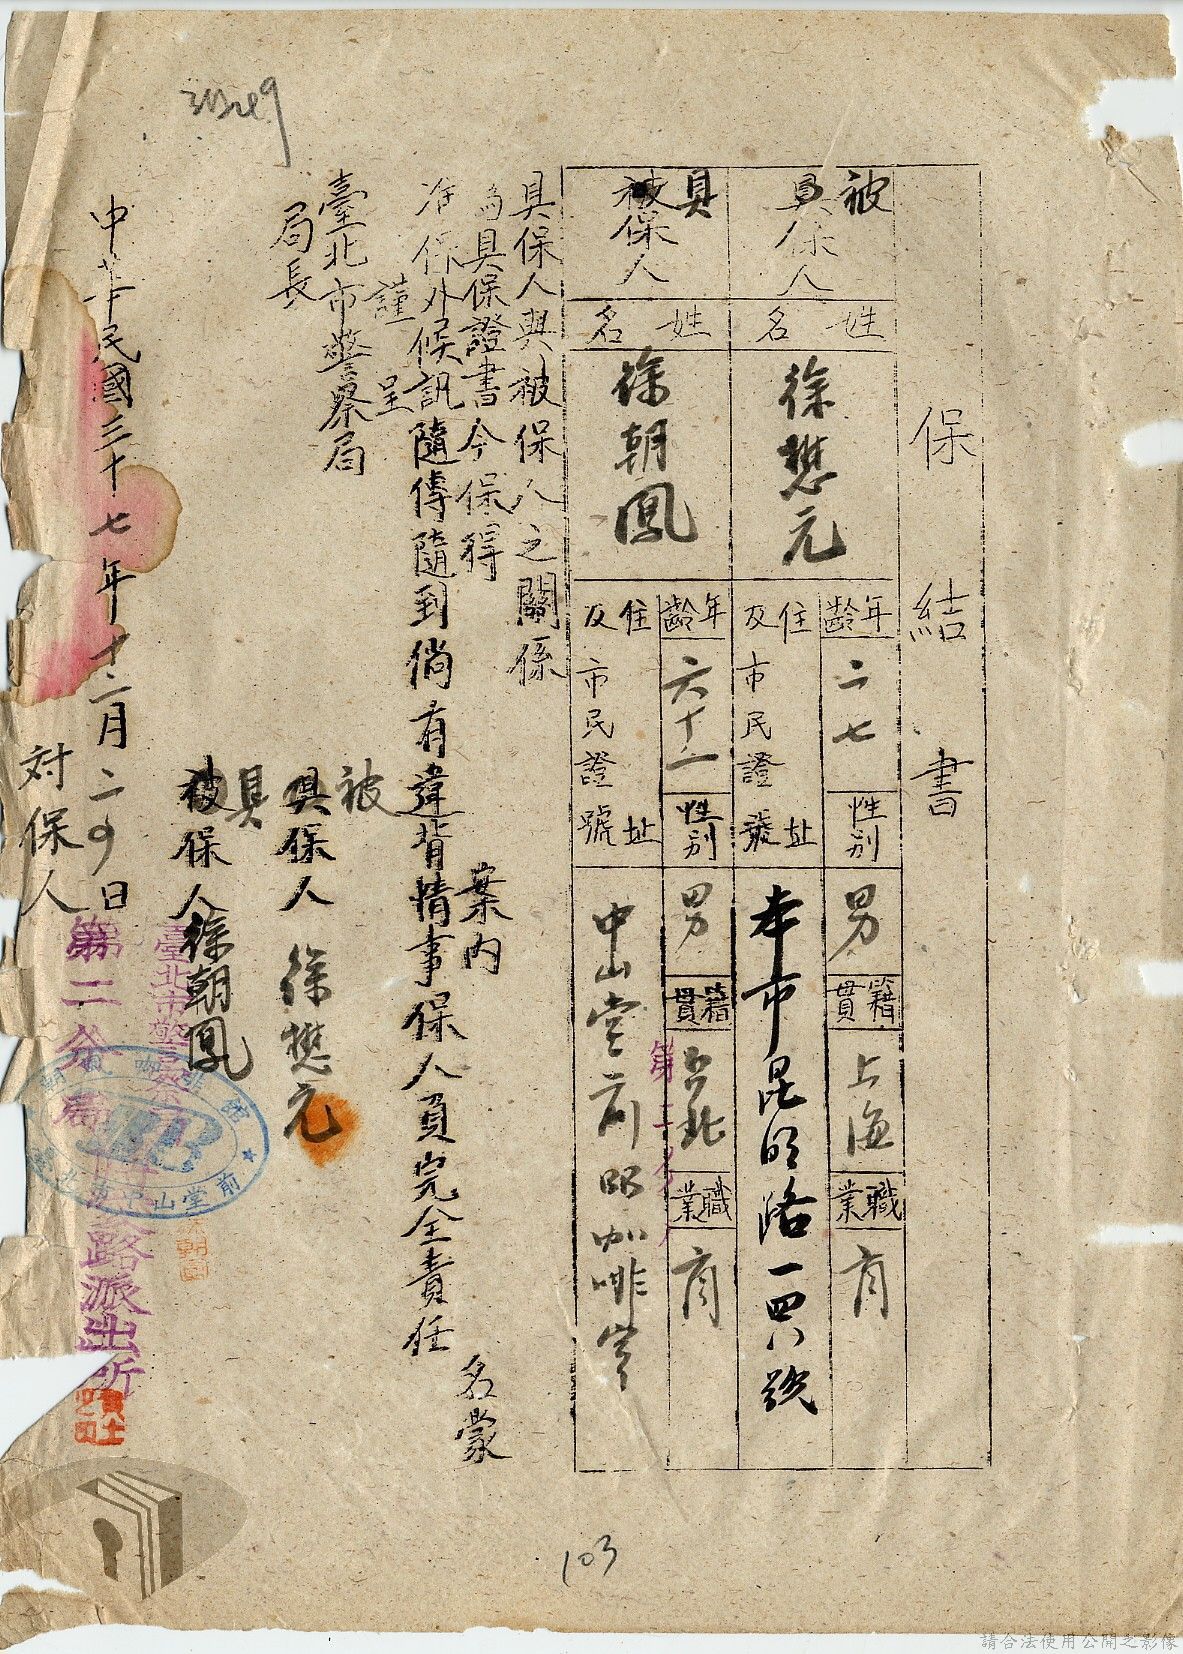 保結書
被
具保人
姓名
徐懋元
年齡
二七
性別
男
籍貫
上海
職業
商
住址及市民證號
本市昆明路一四八號
具
被保人
姓名
徐朝鳳
年齡
六十一
性別
男
籍貫
台北
職業
商
住址及市民證號
中山堂前 咖啡室
具保人與被保人之關係
為具保證書今保得 案內 名蒙
准保外候訊隨傳隨到倘有違背情事保人負完全責任
謹呈
臺北市警察局
局長
被
具保人 徐懋元
具
被保人 徐朝鳳
中華民國三十七年十二月二9日
対保人
臺北市警察局
第二分局
路派出所
咖啡館
臺北市中山堂前
103
請合法使用公開之影像